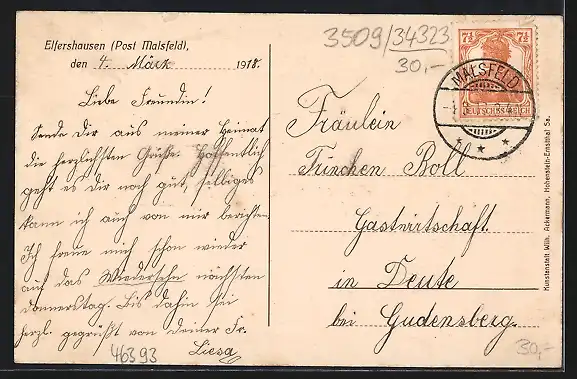 Elfershausen (Post Malsfeld),
den 4. März 1918.
Liebe Freundin!
Sende dir aus meiner Heimat
die herzlichsten Grüße. Hoffentlich
geht es dir noch gut, selbiges
kann ich auch von mir berichten.
Ich freue mich schon wieder
auf das Wiedersehn nächsten
Donnerstag. Bis dahin sei
herzl. gegrüßt von deiner Fr.
Liesa
46393
3509/34323
30,-
7½ 7½
DEUTSCHES REICH
MALSFELD
* * *
Fräulein
Trinchen Boll
Gastwirtschaft
in Deute
bei Gudensberg.
30,-
Kunstanstalt Wilh. Ackermann, Hohenstein-Ernstthal Sa.